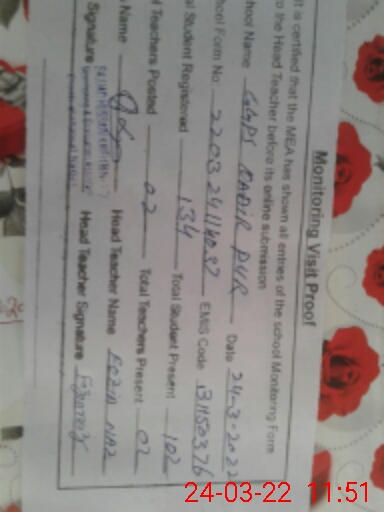 Monitoring Visit Proof
It is certified that the MEA has shown all entries of the school Monitoring Form
to the Head Teacher before its online submission
School Name GGPS QADIR PUR Date 24-3-2022
School Form No. EMIS Code 31150376
al Student Registered 134 Total Student Present 102
l Teachers Posted 02 Total Teachers Present 02
Name Head Teacher Name FOZIA NAZ
Signature Head Teacher Signature
24-03-22 11:51